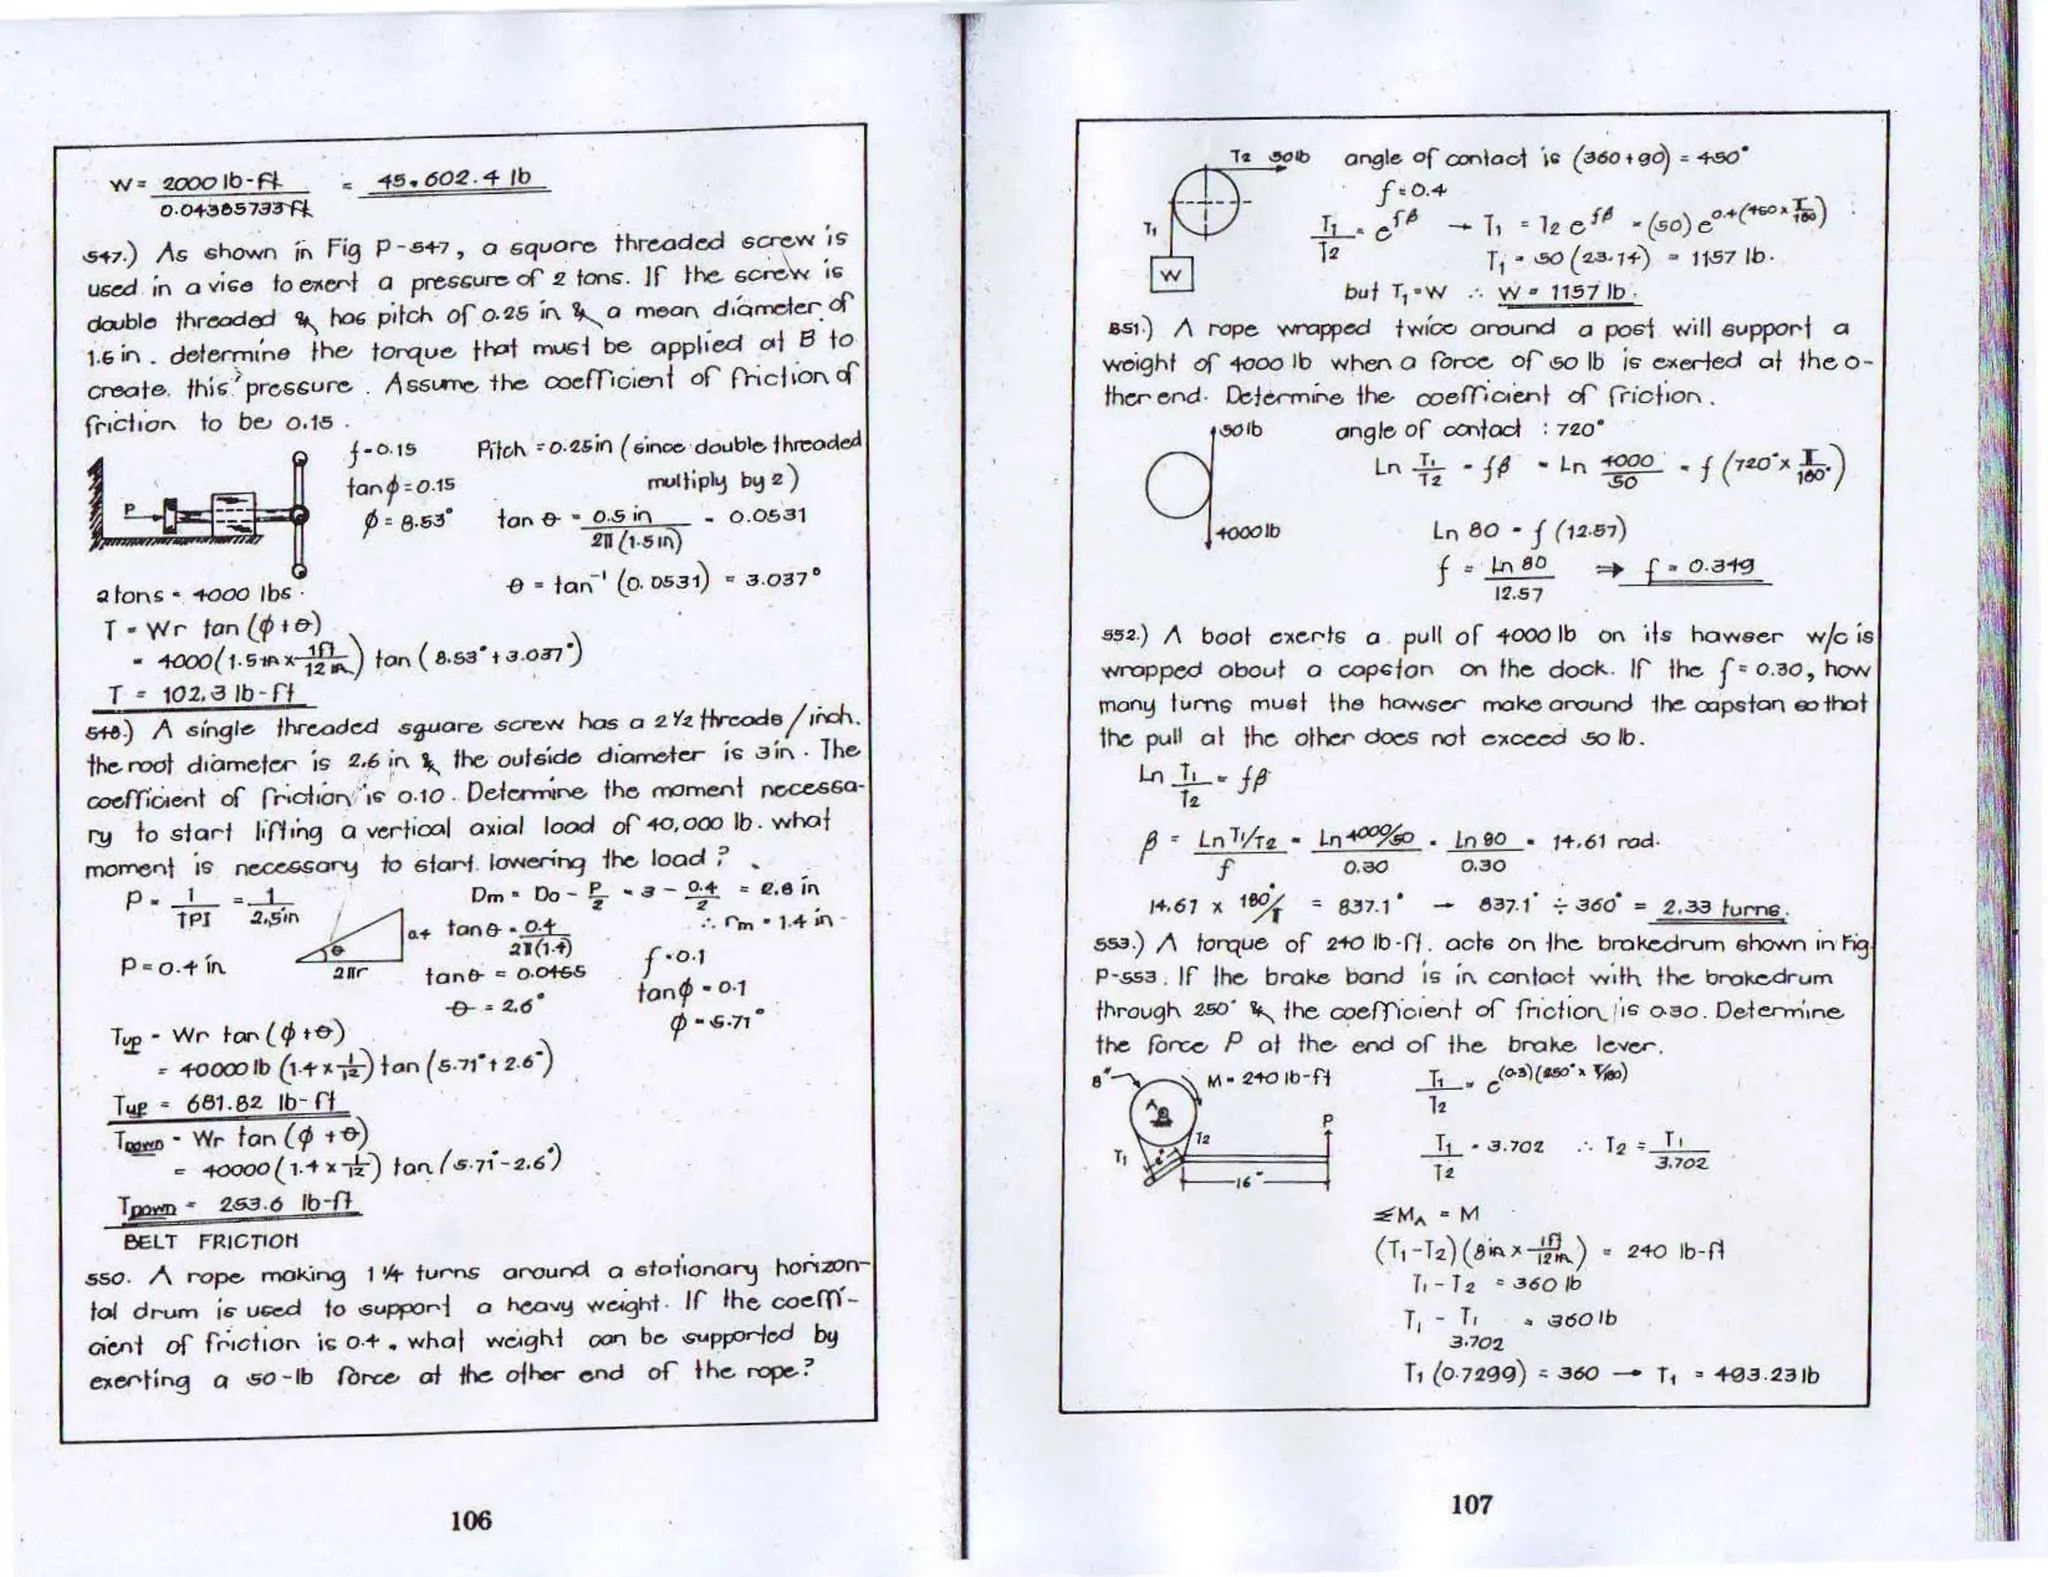 W = 2000 lb-ft / 0.04385733 ft = 45,602.4 lb
547.) As shown in Fig P-547, a square threaded screw is
used in a vise to exert a pressure of 2 tons. If the screw is
double threaded & has pitch of 0.25 in & a mean diameter of
1.5 in. determine the torque that must be applied at B to
create this pressure. Assume the coefficient of friction of
friction to be 0.15.
f = 0.15 Pitch = 0.25in (since double threaded
multiply by 2)
tan ϕ = 0.15
ϕ = 8.53° tan θ = 0.5 in / 2π(1.5in) = 0.0531
P
θ = tan⁻¹ (0.0531) = 3.037°
2 tons = 4000 lbs.
T = Wr tan (ϕ + θ)
= 4000(1.5 in x 1ft / 12 in) tan (8.53° + 3.037°)
T = 102.3 lb-ft
548.) A single threaded square screw has a 2 1/2 threads/inch.
the root diameter is 2.6 in & the outside diameter is 3in. The
coefficient of friction is 0.10. Determine the moment necessa-
ry to start lifting a vertical axial load of 40,000 lb. what
moment is necessary to start lowering the load?
P = 1 / TPI = 1 / 2.5in Dm = Do - P/2 = 3 - 0.4/2 = 2.8 in
∴ rm = 1.4 in
0.4 tan θ = 0.4 / 2π(1.4)
θ
P = 0.4 in 2πr tan θ = 0.0455 f = 0.1
θ = 2.6° tan ϕ = 0.1
ϕ = 5.71°
Tup = Wr tan (ϕ + θ)
= 40000 lb (1.4 x 1/12) tan (5.71° + 2.6°)
Tup = 681.82 lb-ft
TDOWN = Wr tan (ϕ + θ)
= 40000 (1.4 x 1/12) tan (5.71° - 2.6°)
TDOWN = 253.6 lb-ft
BELT FRICTION
550. A rope making 1 1/4 turns around a stationary horizon-
tal drum is used to support a heavy weight. If the coeffi-
cient of friction is 0.4. what weight can be supported by
exerting a 50-lb force at the other end of the rope?
106
T2 50lb angle of contact is (360 + 90) = 450°
f = 0.4
T1 T1/T2 = e^fβ → T1 = T2 e^fβ = (50) e^0.4(450 x π/180)
T1 = 50 (23.14) = 1157 lb.
W but T1 = W ∴ W = 1157 lb.
551.) A rope wrapped twice around a post will support a
weight of 4000 lb when a force of 50 lb is exerted at the o-
ther end. Determine the coefficient of friction.
50lb angle of contact : 720°
Ln T1/T2 = fβ = Ln 4000/50 = f (720° x π/180°)
4000lb Ln 80 = f (12.57)
f = Ln 80 / 12.57 ⇒ f = 0.349
552.) A boat exerts a pull of 4000 lb on its hawser w/c is
wrapped about a capstan on the dock. If the f = 0.30, how
many turns must the hawser make around the capstan so that
the pull at the other does not exceed 50 lb.
Ln T1/T2 = fβ
β = Ln T1/T2 / f = Ln 4000/50 / 0.30 = Ln 80 / 0.30 = 14.61 rad.
14.61 x 180°/π = 837.1° → 837.1° ÷ 360° = 2.33 turns.
553.) A torque of 240 lb-ft. acts on the brakedrum shown in Fig
P-553. If the brake band is in contact with the brakedrum
through 250° & the coefficient of friction is 0.30. Determine
the force P at the end of the brake lever.
8" M = 240 lb-ft T1/T2 = e^(0.3)(250° x π/180)
A P
T1 T2 T1/T2 = 3.702 ∴ T2 = T1/3.702
16"
ΣMA = M
(T1 - T2)(8 in x 1ft / 12 in) = 240 lb-ft
T1 - T2 = 360 lb
T1 - T1/3.702 = 360 lb
T1 (0.7299) = 360 → T1 = 493.23 lb
107